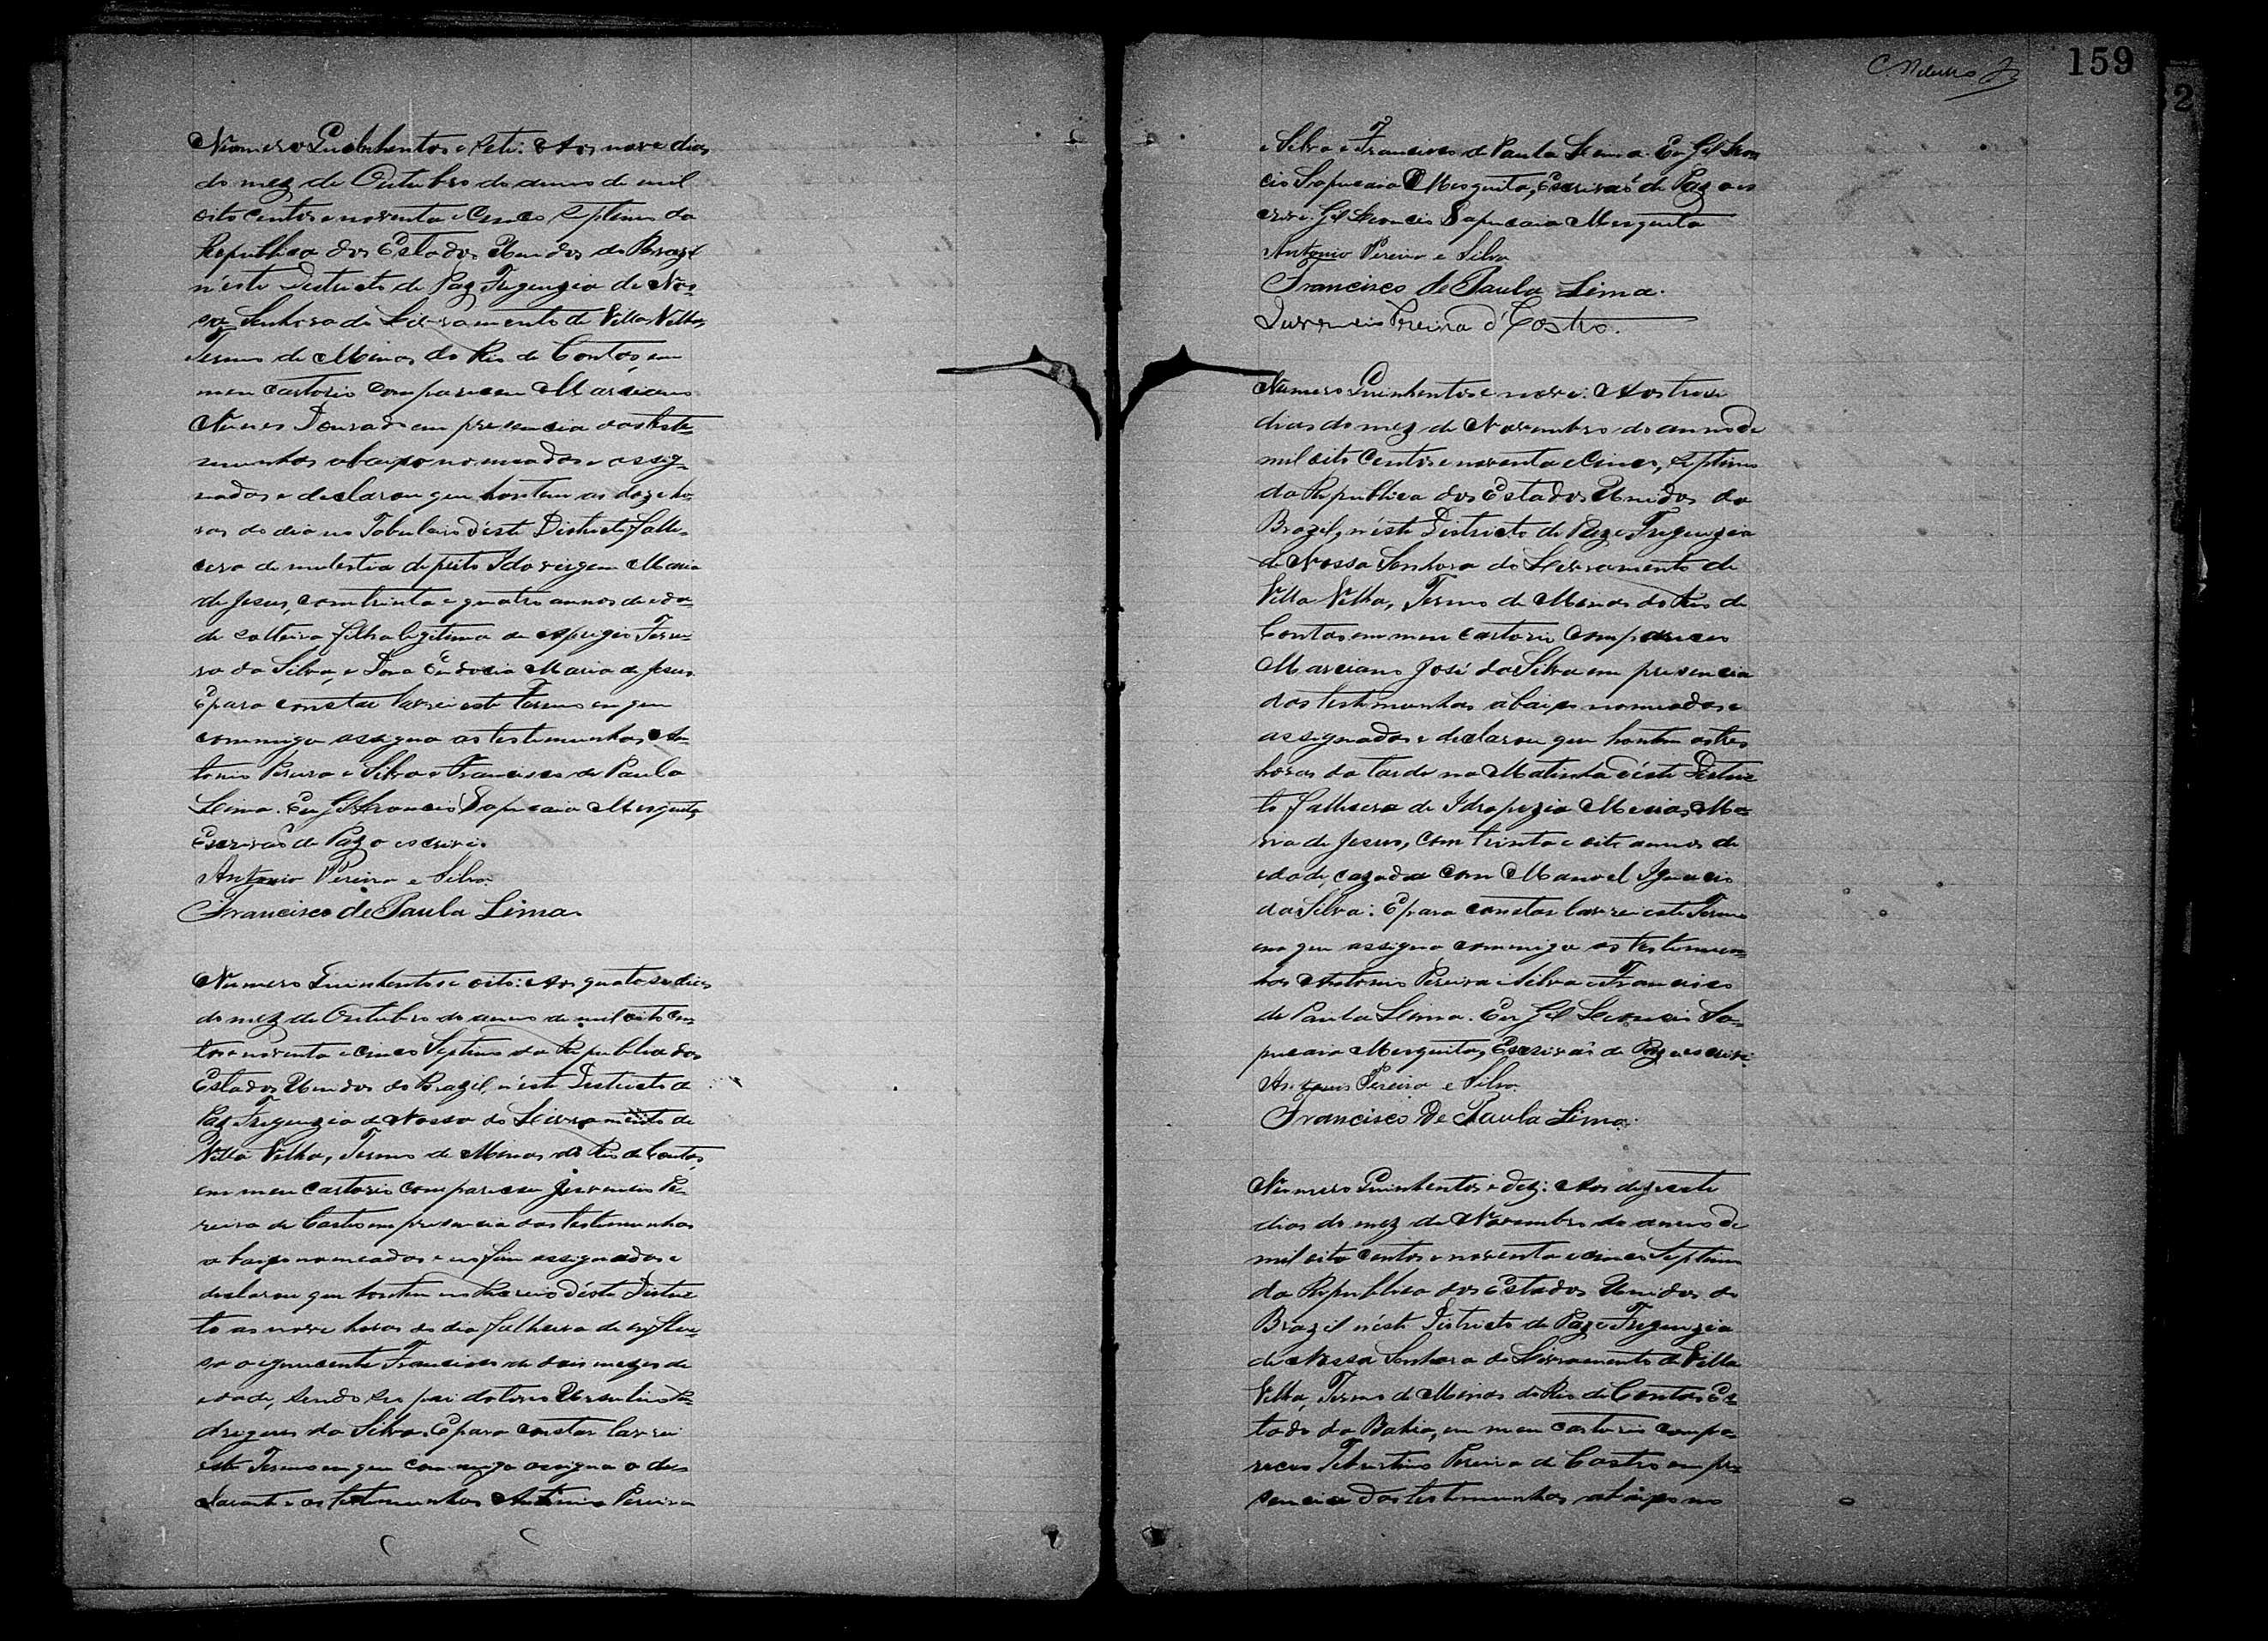 Numero Quinhentos e sete: Aos nove dias
do mez de Outubro do anno de mil
oito centos e noventa e Cinco, Septimo da
Republica dos Estados Unidos do Brazil
n'este Destricto de Paz Freguezia de Nos-
sa Senhora do Livramento de Villa Velha,
Termo de Minas do Rio de Contas, em
meu cartorio compareceu Marciano
Nunes Dourado em presencia das teste-
munhas abaixo nomeadas e assig-
nadas e declarou que hontem as doze ho-
ras do dia no Taboleiro d'este Districto falle-
cera de molestia de peito Idavirgem Maria
de Jesus, com trinta e quatro annos de ida-
de solteira filha legitima de Ferrei-
ra da Silva, e Dona Eudocia Maria de Jesus
E para constar lavrei este termo em que
commigo assigna as testemunhas An-
tonio Pereira e Silva e Francisco de Paula
Lima. Eu Gil Leoncio Sapucaia Mesquita,
Escrivaõ de Paz o escrevi.
Antonio Pereira e Silva.
Francisco de Paula Lima.
Numero Quinhentos e oito: Aos quatorze dias
do mez de Outubro do anno de mil oito cen-
tos e noventa e cinco Septimo da Republica dos
Estados Unidos do Brazil, n'este Destricto de
Paz Freguezia de Nossa do Livramento de
Villa Velha, Termo de Minas do Rio de Contas,
em meu cartorio compareceu Juvencio Pe-
reira de Castro em presencia das testemunhas
abaixo nomeadas e no fim assignadas e
declarou que hontem no d'este Distric-
to as nove horas do dia fallecera de influen-
sa o ignocente Francisco de dois mezes de
idade, sendo seo pai Ursulino Ro-
drigues da Silva. E para constar lavrei
este Termo em que commigo assigna o de-
clarante e as testemunhas Antonio Pereira
159
e Silva e Francisco de Paula Lima. Eu Gil Leon
cio Sapucaia Mesquita, Escrivaõ de Paz o es
crevi. Gil Leoncio Sapucaia Mesquita
Antonio Pereira e Silva
Francisco de Paula Lima.
Juvencio Pereira d'Castro.
Numero Quinhentos e nove: Aos treze
dias do mez de Novembro do anno de
mil oito centos e noventa e Cinco, Septimo
da Republica dos Estados Unidos do
Brazil, n'este Districto de Paz e Freguezia
de Nossa Senhora do Livramento de
Villa Velha, Termo de Minas do Rio de
Contas em meu cartorio compareceu
Marciano José da Silva em presencia
das testemunhas abaixo nomeadas e
assignadas e declarou que hontem as tres
horas da tarde na Matinha d'este Distric
to fallecera de Idropezia Maria Ma-
ria de Jesus, com trinta e oito annos de
idade, cazada com Manoel Ignacio
da Silva: E para constar lavrei este Termo
em que assigna commigo as testemun-
has Antonio Pereira e Silva e Francisco
de Paula Lima. Eu Gil Leoncio Sa-
pucaia Mesquita, Escrivaõ de Paz o escrevi.
Antonio Pereira e Silva.
Francisco de Paula Lima.
Numero Quinhentos e dez: Aos dezesete
dias do mez de Novembro do anno de
mil oito centos e noventa e cinco Septimo
da Republica dos Estados Unidos do
Brazil n'este Districto de Paz e Freguezia
de Nossa Senhora do Livramento de Villa
Velha, Termo de Minas do Rio de Contas Es-
tado da Bahia, em meu cartorio compa-
receu Tiburtino Pereira de Castro em pre-
sencia das testemunhas abaixo no